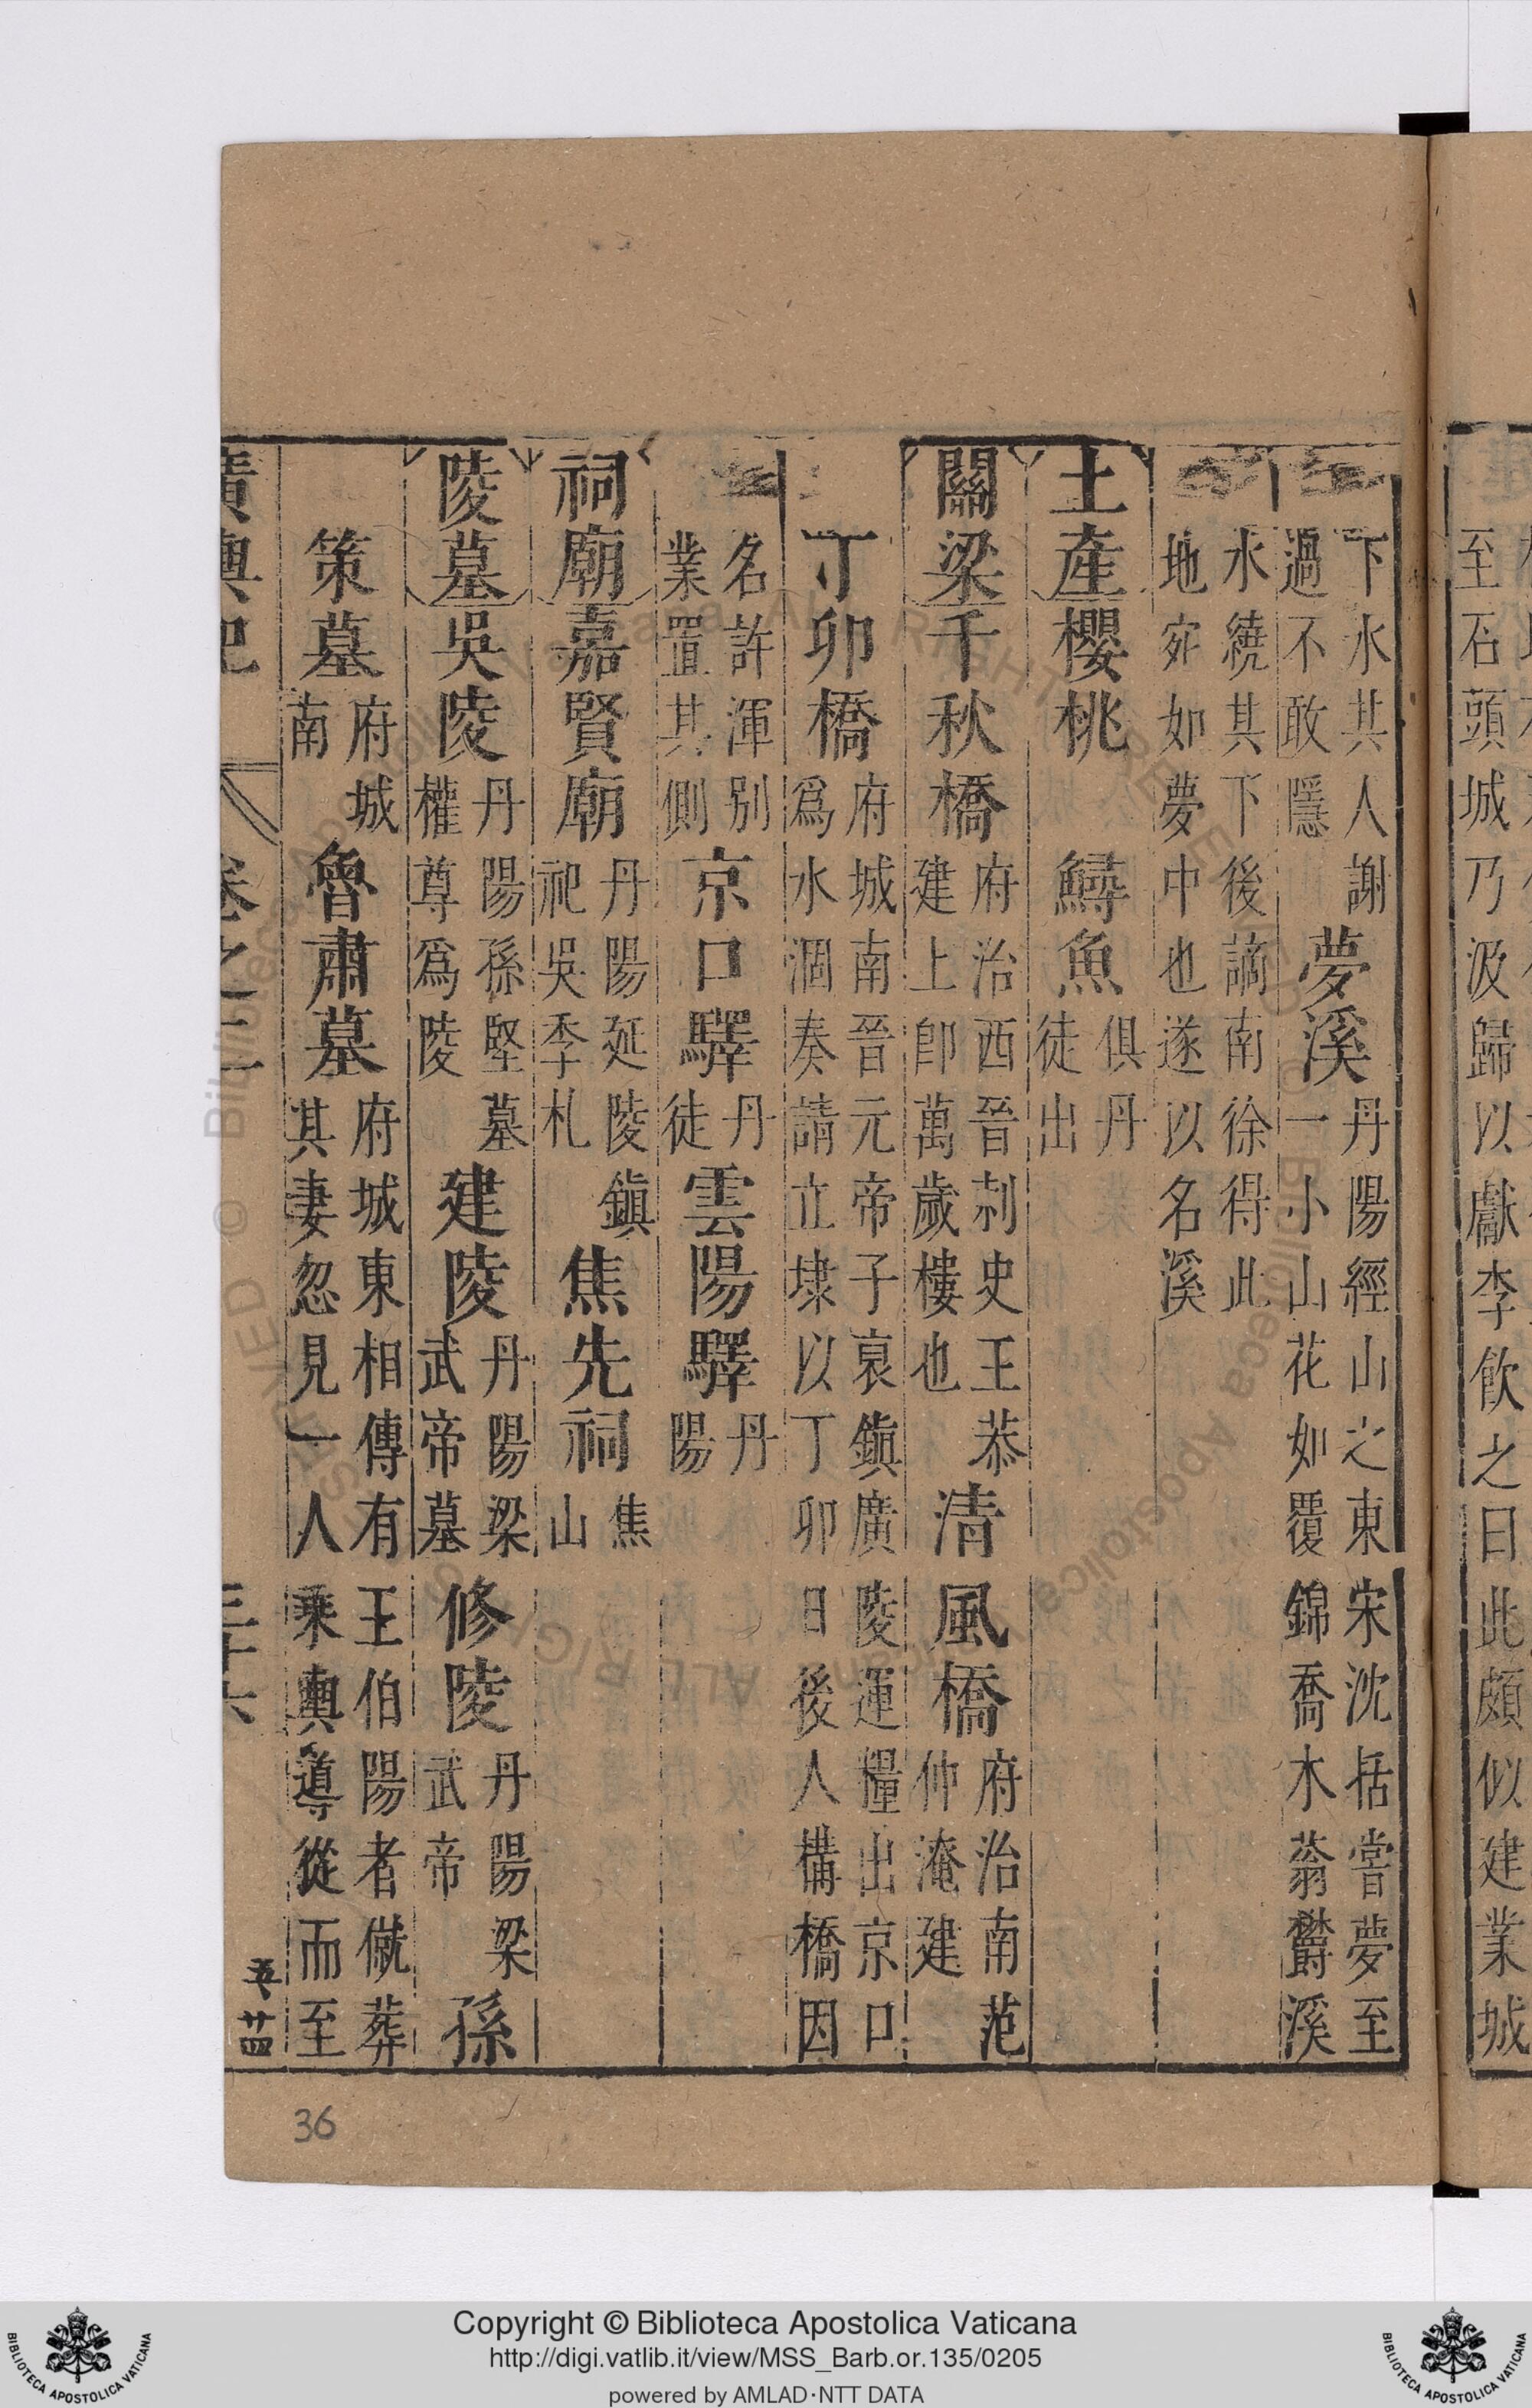 下水共人謝夢溪丹陽經山之東宋沈括嘗夢至
過不敢隱一小山花如覆錦喬木蓊鬱溪
水繞其下後謫南徐得此
地宛如夢中也遂以名溪
土產櫻桃 鱘魚俱丹
徒出
關梁千秋橋府治西晉刺史王恭清風橋府治南范
建上卽萬歲樓也仲淹建
丁卯橋府城南晉元帝子裒鎮廣陵運糧出京口
爲水涸奏請立埭以丁卯日後人構橋因
名許渾別京口驛丹雲陽驛丹
業置其側徒陽
祠廟嘉賢廟丹陽延陵鎮焦先祠焦
祀吳季札山
陵墓吳陵丹陽孫堅墓建陵丹陽梁修陵丹陽梁孫
權尊爲陵武帝墓武帝
策墓府城魯肅墓府城東相傳有王伯陽者僦葬
南其妻忽見一人乘輿導從而至
廣輿記 卷之二 三十六
至石頭城乃汲歸以獻李飲之曰此頗似建業城
36
Copyright © Biblioteca Apostolica Vaticana
http://digi.vatlib.it/view/MSS_Barb.or.135/0205
powered by AMLAD·NTT DATA
BIBLIOTECA APOSTOLICA VATICANA
BIBLIOTECA APOSTOLICA VATICANA